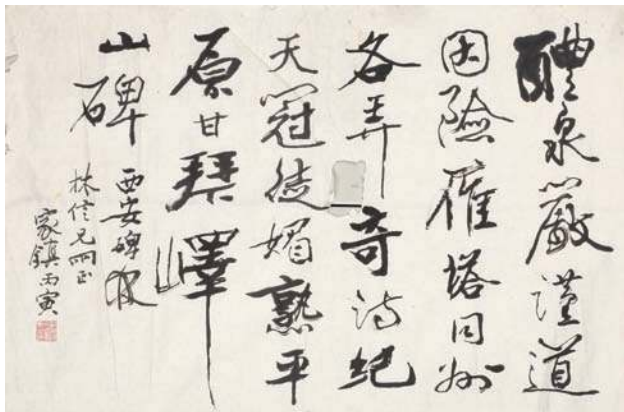 醴泉嚴謹道
因險雁塔同州
各弄奇詩紀
天冠徒媚熟平
原甘拜嶧
山碑 西安碑
林信兄哂正
家鎮丙寅